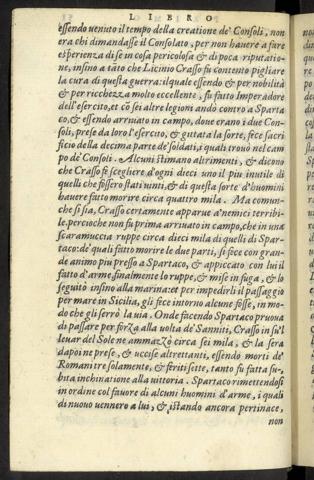 LIBRO
essendo venuto il tempo della creatione de' Consoli, non
era chi dimandasse il Consolato, per non hauere a fare
esperienza di se in cosa pericolosa & di poca riputatio-
ne, insino a tãto che Licinio Crasso fu contento pigliare
la cura di questa guerra: il quale essendo & per nobilità
& per ricchezza molto eccellente, fu fatto Imperadore
dell'esercito, et cõ sei altre legioni andò contro a Sparta
co, & essendo arriuato in campo, doue erano i due Con-
soli, prese da loro l'esercito, & gittata la sorte, fece sacri
ficio della decima parte de' soldati, i quali trouò nel cam
po de' Consoli. Alcuni stimano altrimenti, & dicono
che Crasso fe scegliere d'ogni dieci uno il piu inutile di
quelli che fossero stati uinti, & di questa sorte d'huomini
hauere fatto morire circa quattro mila. Ma comun-
che si sia, Crasso certamente apparue a' nemici terribi-
le. percioche non fu prima arriuato in campo, che in una
scaramuccia ruppe circa dieci mila di quelli di Spar-
taco: de' quali fatto morire le due parti, si fece con gran-
de animo piu presso a Spartaco, & appiccato con lui il
fatto d'arme, finalmente lo ruppe, & mise in fuga, & lo
seguitò insino alla marina: et per impedirli il passaggio
per mare in Sicilia, gli fece intorno alcune fosse, in mo-
do che gli serrò la uia. Onde facendo Spartaco pruoua
di passare per forza alla uolta de' Sanniti, Crasso in su'l
leuar del Sole ne ammazzò circa sei mila, & la sera
dapoi ne prese, & uccise altrettanti, essendo morti de'
Romani tre solamente, & feriti sette, tanto fu fatta su-
bita inchinatione alla uittoria. Spartaco rimettendosi
in ordine col fauore di alcuni huomini d'arme, i quali
di nuouo uennero a lui, & istando ancora pertinace,
non